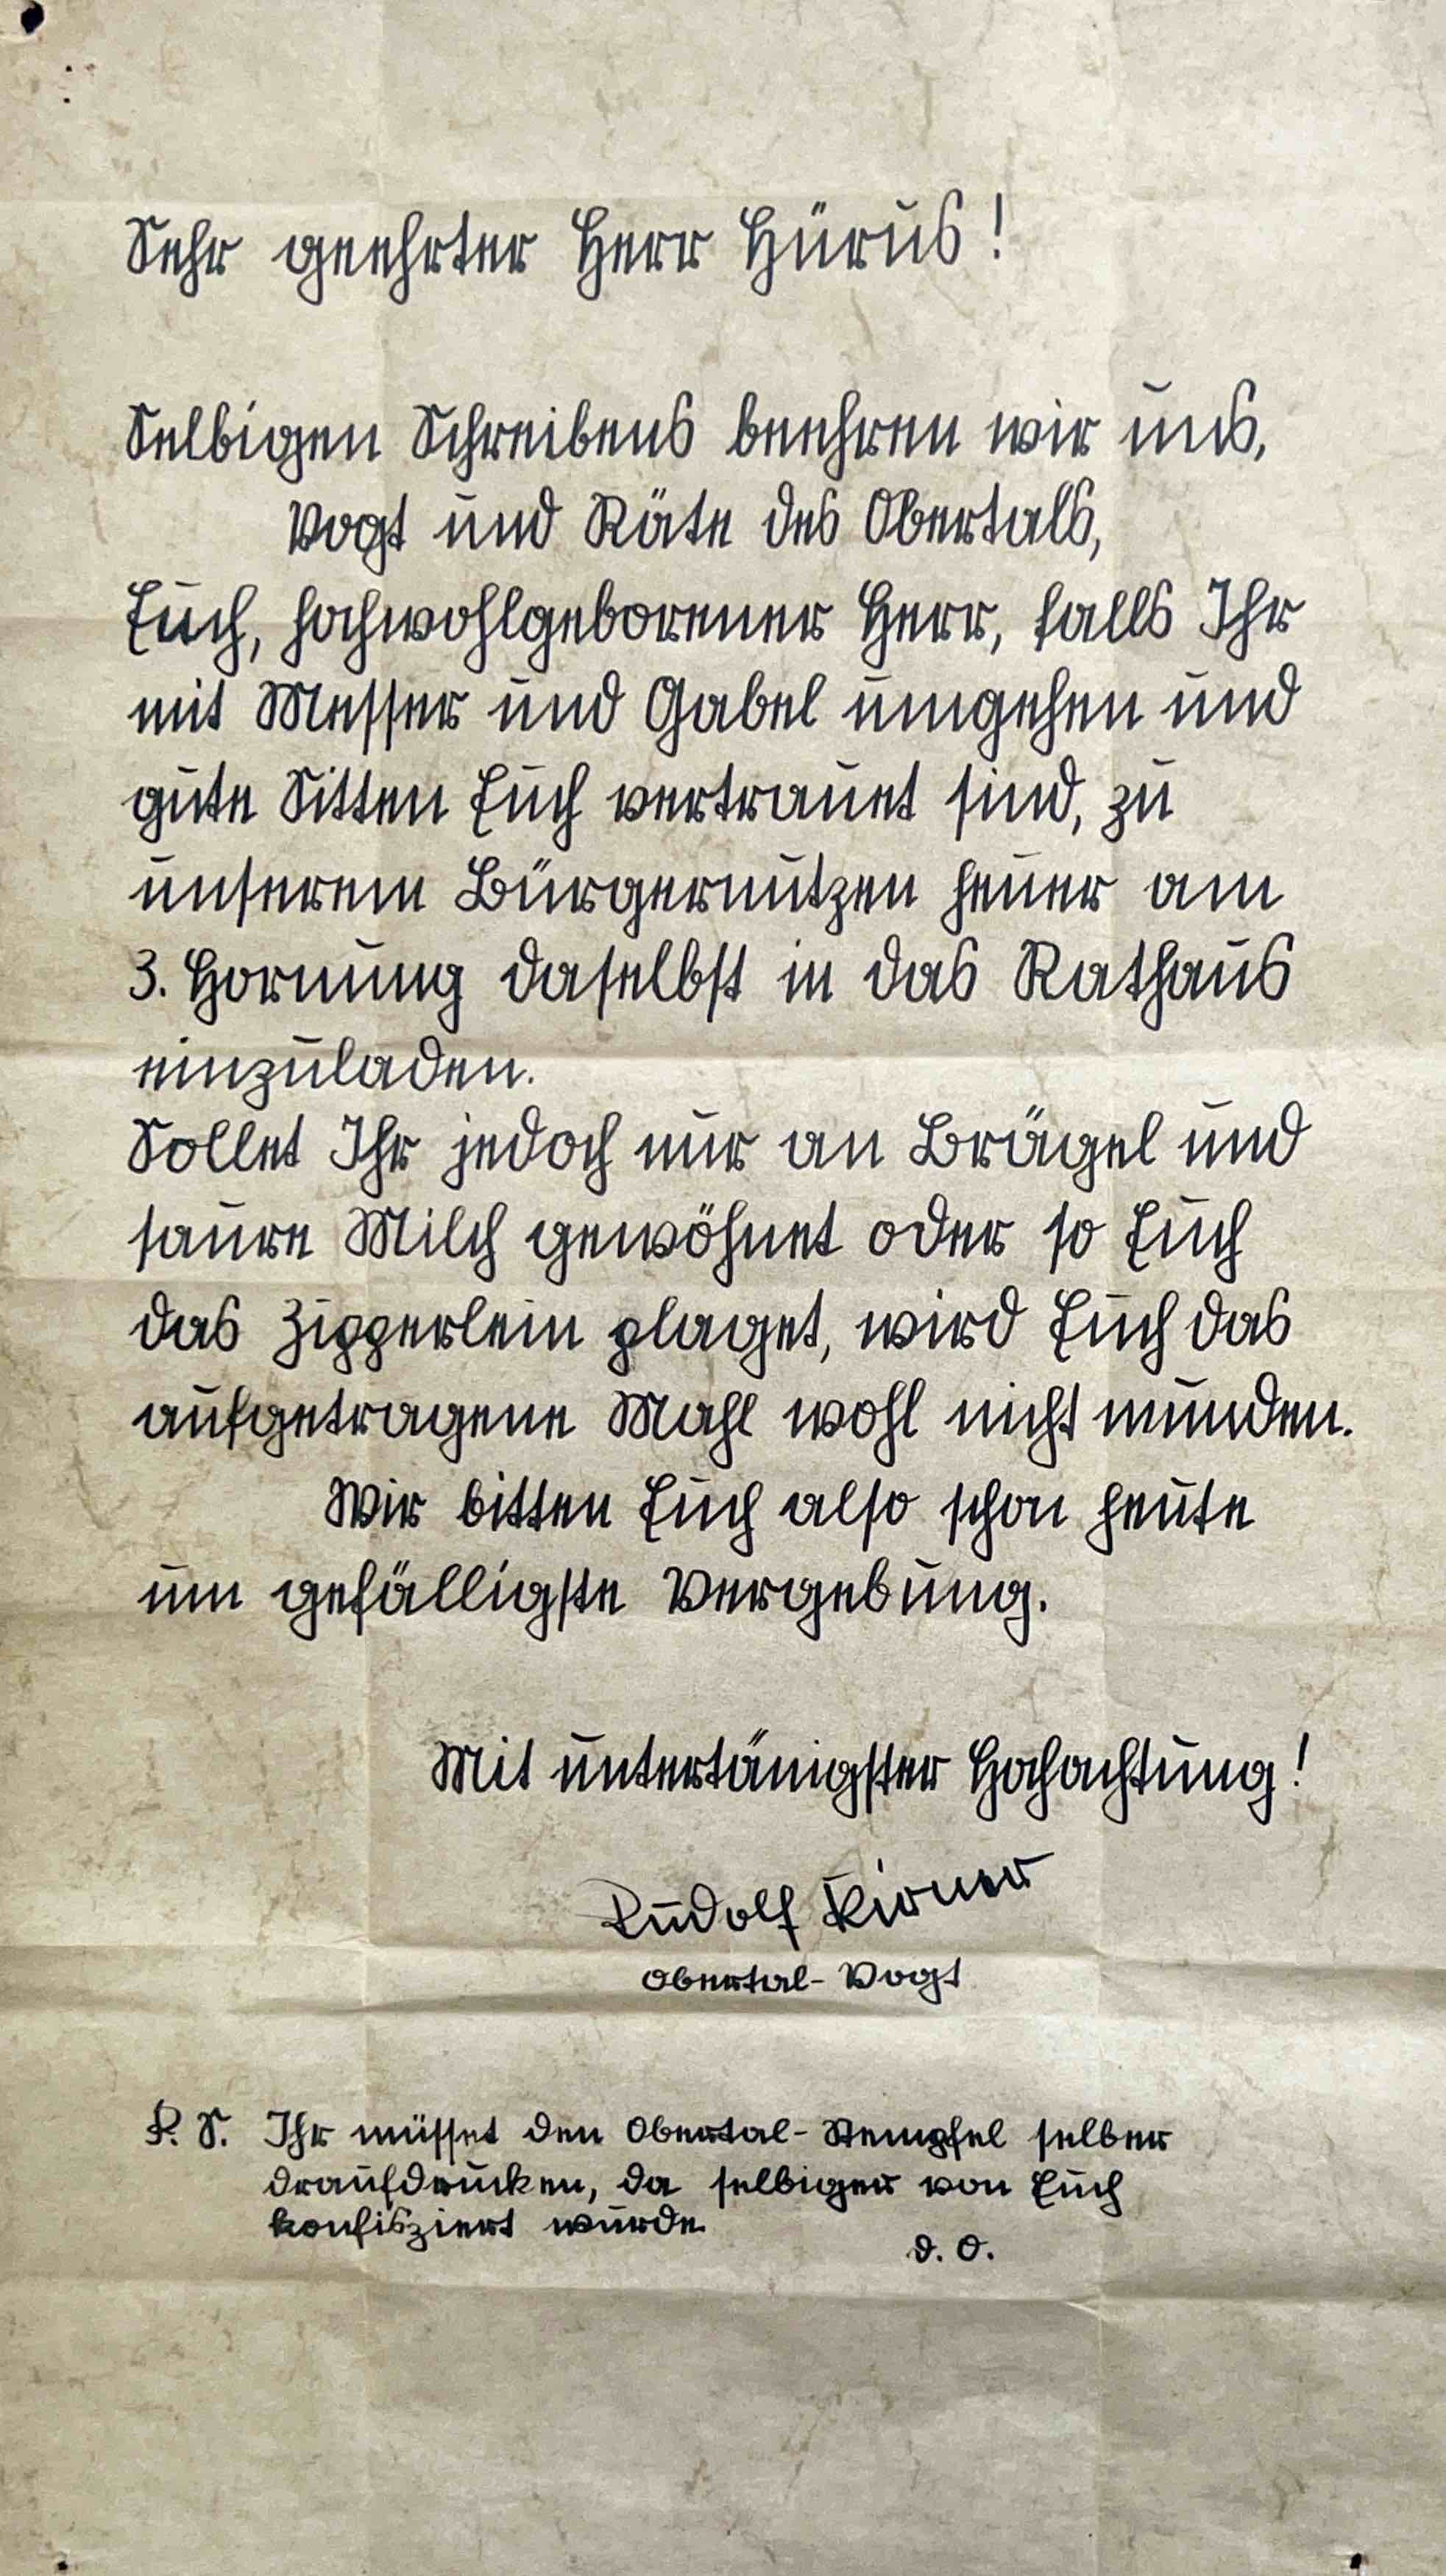 Sehr geehrter Herr Hürus!
Selbigen Schreibens beehren wir uns,
Vogt und Räte des Obertals,
Euch, hochwohlgeborener Herr, falls Ihr
mit Messer und Gabel umgehen und
gute Sitten Euch vertrauet sind, zu
unserem Bürgernutzen heuer am
3. Hornung daselbst in das Rathaus
einzuladen.
Sollet Ihr jedoch nur an Brägel und
saure Milch gewöhnet oder so Euch
das Zipperlein plaget, wird Euch das
aufgetragene Mahl wohl nicht munden.
Wir bitten Euch also schon heute
um gefälligste Vergebung.
Mit untertänigster Hochachtung!
Rudolf Kirner
Obertal-Vogt
P. S. Ihr müsset den Obertal-Stempfel selber
draufdrucken, da selbiger von Euch
konfisziert wurde
d. O.